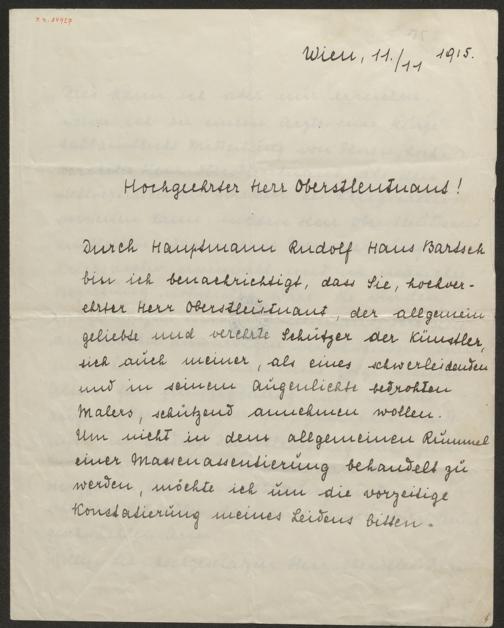 Wien, 11./11 1915.
Hochgeehrter Herr Oberstleutnant!
Durch Hauptmann Rudolf Hans Bartsch
bin ich benachrichtigt, dass Sie, hochver-
ehrter Herr Oberstleutnant, der allgemein
geliebte und verehrte Schützer der Künstler,
sich auch meiner, als eines schwerleidenden
und in seinem Augenlichte bedrohten
Malers, schützend annehmen wollen.
Um nicht in dem allgemeinen Rummel
einer Massenassentierung behandelt zu
werden, möchte ich um die vorzeitige
Konstatierung meines Leidens bitten.